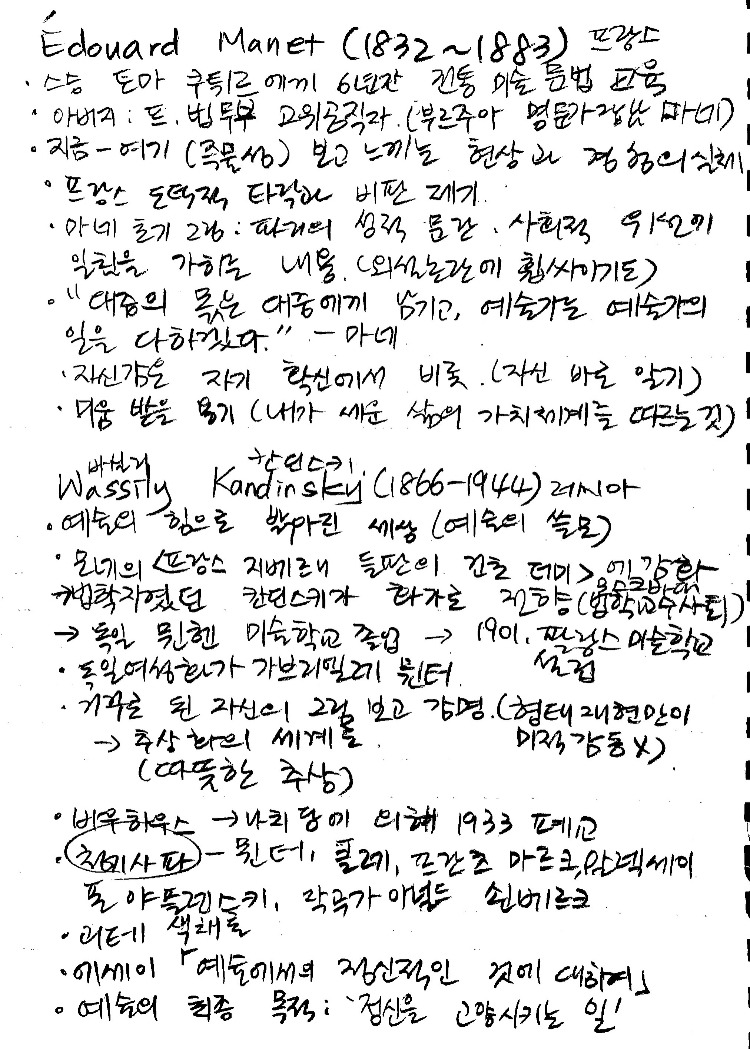 Édouard Manet (1832~1883) 프랑스
· 스승 토마 쿠튀르에게 6년간 전통 미술 문법 교육
· 아버지 : 프. 법무부 고위공직자. (부르주아 명문가 장남 마네)
· 지금-여기 (즉물성) 보고 느끼는 현상과 경험의 실체
· 프랑스 도덕적 타락과 비판 제기.
· 마네 초기 그림 : 파리의 성적 문란. 사회적 위선에
일침을 가하는 내용. (외설논란에 휩싸이기도)
· "대중의 몫은 대중에게 남기고, 예술가는 예술가의
일을 다하겠다." - 마네
· 자신감은 자기 확신에서 비롯. (자신 바로 알기)
· 미움 받을 용기 (내가 세운 삶의 가치체계를 따르는 것)
바실리 칸딘스키
Wassily Kandinsky (1866-1944) 러시아
· 예술의 힘으로 발아린 세상 (예술의 쓸모)
· 모네의 <프랑스 지베르니 들판의 건초 더미>에 감화
법학자였던 칸딘스키가 화가로 전향 (법학교수사퇴)
→ 독일 뮌헨 미술학교 졸업 → 1901. 팔랑스 미술학교
설립
· 독일여성화가 가브리엘레 뮌터
· 거꾸로 된 자신의 그림 보고 감명. (형태 재현만이
→ 추상화의 세계로 미적감동 X)
(따뜻한 추상)
· 바우하우스 → 나치당에 의해 1933 폐교
· 청기사파 - 뮌터, 클레, 프란츠 마르크, 알렉세이
폰 야플렌스키, 작곡가 아널드 쇤베르크
· 괴테 색채론
· 에세이 「예술에서의 정신적인 것에 대하여」
· 예술의 최종 목적 : '정신을 고양시키는 일'